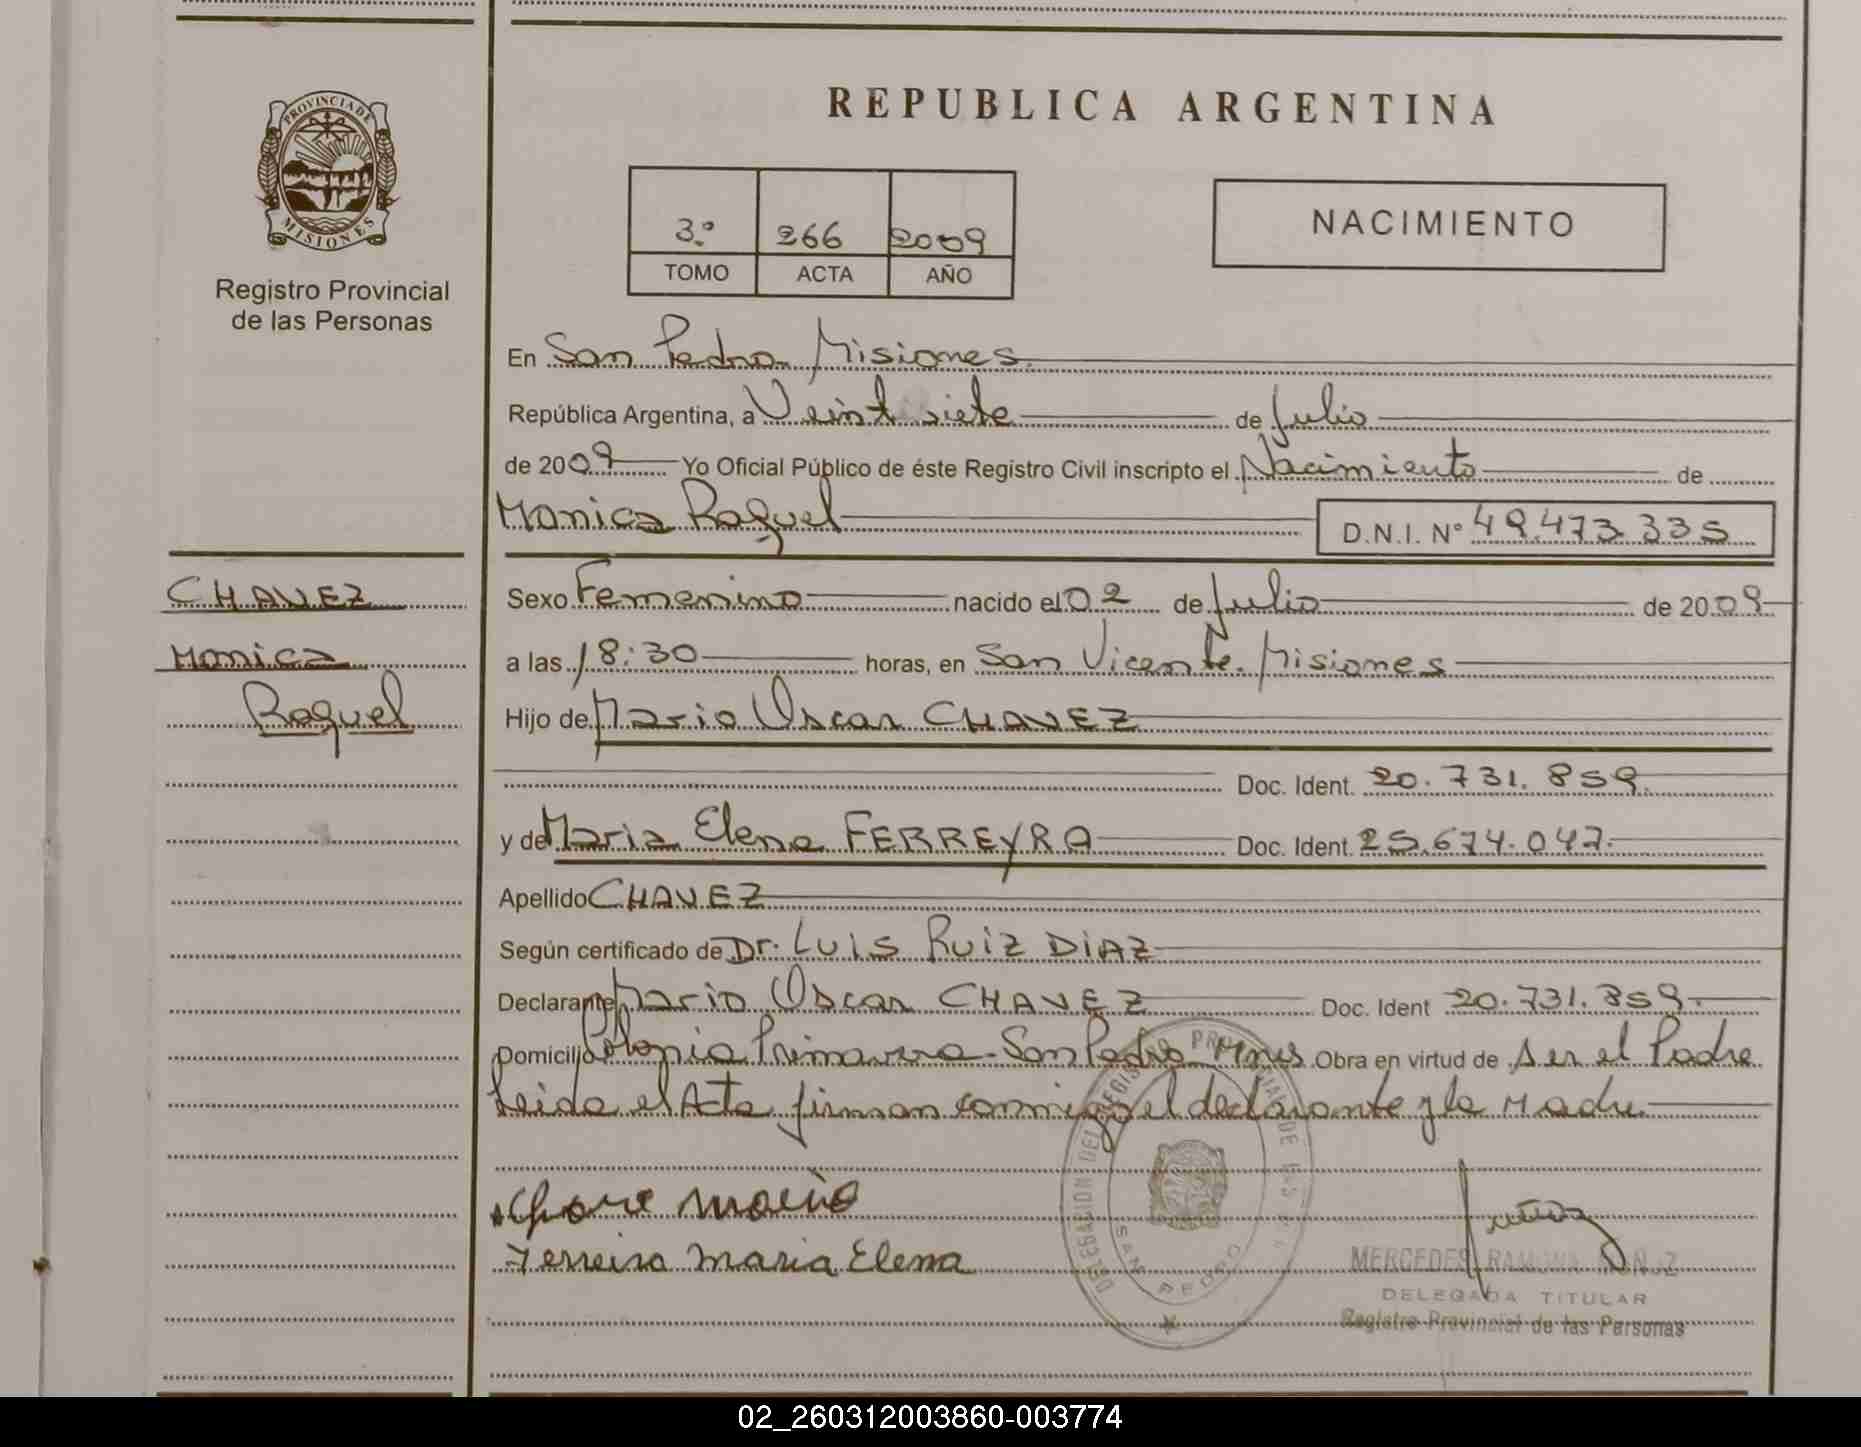 REPUBLICA ARGENTINA
PROVINCIA DE
MISIONES
Registro Provincial
de las Personas
3.º 266 2009
TOMO ACTA AÑO
NACIMIENTO
En San Pedro Misiones
República Argentina, a Veintisiete de Julio
de 2009 Yo Oficial Público de éste Registro Civil inscripto el Nacimiento de
Monica Raquel D.N.I. Nº 49.473.335
CHAVEZ
Monica
Raquel
Sexo Femenino nacido el 02 de Julio de 2009
a las 18:30 horas, en San Vicente. Misiones
Hijo de Mario Oscar CHAVEZ
Doc. Ident. 20.731.859.
y de Maria Elena FERREYRA Doc. Ident. 25.674.047.
Apellido CHAVEZ
Según certificado de Dr. LUIS RUIZ DIAZ
Declarante Mario Oscar CHAVEZ Doc. Ident 20.731.859.
Domicilio Colonia Primavera - San Pedro Mnes Obra en virtud de ser el Padre
Leida el Acta firman conmigo el declarante y la Madre
Mario
Ferreira Maria Elena
DELEGACION DEL REGISTRO PROVINCIAL DE LAS
SAN PEDRO
MERCEDES RAMONA MUÑOZ
DELEGADA TITULAR
Registro Provincial de las Personas
02_260312003860-003774